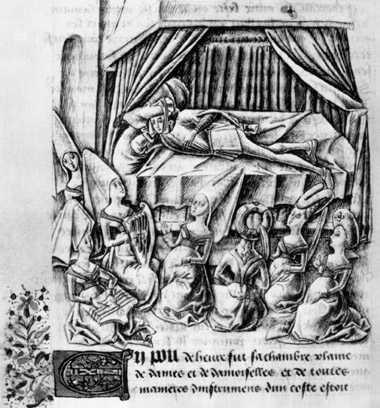 En pou de heure fut sa chambre plaine
de dames et de damoiselles et de toutes
manieres dinstrumens dun coste estoit